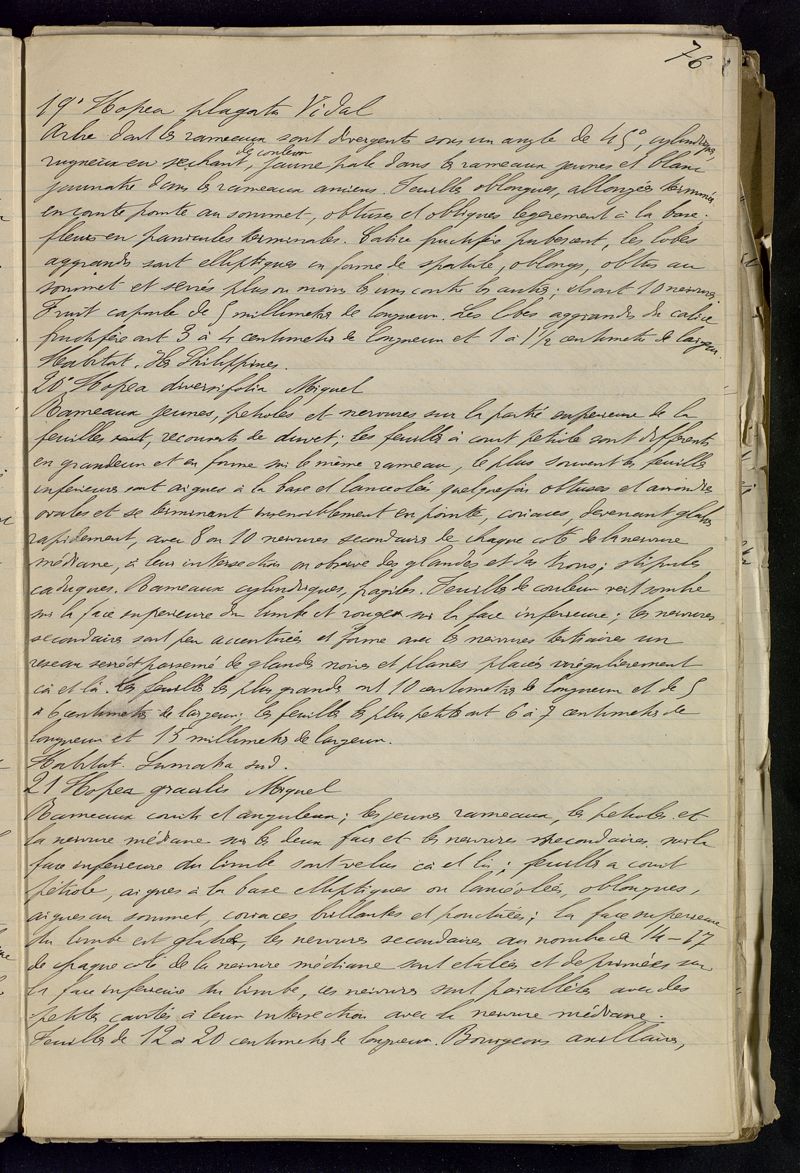 76
19° Hopea plagata Vidal
Arbre dont les rameaux sont divergents sous un angle de 45°, cylindriques,
rugueux en sechant, de couleur jaune pale dans les rameaux jeunes et blanc
jaunatre dans les rameaux anciens. Feuilles oblongues, allongées terminées
en courte pointe au sommet, obtuses et obliques legerement à la base.
fleurs en panicules terminales. Calice fructifère pubescent, les lobes
aggrandis sont elliptiques en forme de spatule, oblongs, obtus au
sommet et serrés plus ou moins les uns contre les autres; ils ont 10 nervures.
Fruit capsule de 5 millimetres de longueur. Les lobes aggrandis du calice
fructifère ont 3 à 4 centimetres de longueur et 1 à 1 1/2 centimetre de largeur.
Habitat. Iles Philippines.
20° Hopea diversifolia Miquel
Rameaux jeunes, petioles et nervures sur la partie superieure de la
feuilles sont, recouverts de duvet; les feuilles à court petiole sont differentes
en grandeur et en forme sur le même rameau, le plus souvent les feuilles
inferieures sont aigues à la base et lanceolées quelquefois obtuses et arrondies
ovales et se terminant insensiblement en pointe, coriaces, devenant glabres
rapidement, avec 8 ou 10 nervures secondaires de chaque coté de la nervure
médiane, à leur intersection on observe des glandes et des trous; stipules
caduques. Rameaux cylindriques, fragiles. Feuilles de couleur vert sombre
sur la face superieure du limbe et rouge sur la face inferieure; les nervures
secondaires sont peu accentuées et forme avec les nervures tertiaires un
reseau serré et parsemé de glandes noires et planes placées irrégulierement
çà et là. Les feuilles les plus grandes ont 10 centimetres de longueur et de 5
à 6 centimetres de largeur; les feuilles les plus petites ont 6 à 7 centimetres de
longueur et 15 millimetres de largeur.
Habitat. Sumatra sud.
21 Hopea gracilis Miquel
Rameaux courts et anguleux; les jeunes rameaux, les petioles et
la nervure médiane sur les deux faces et les nervures secondaires sur la
face inferieure du limbe sont velus çà et là; feuilles a court
pétiole, aigues à la base elliptiques ou lancéolées, oblongues,
aigues au sommet, coriaces brillantes et ponctuées; la face superieure
du limbe est glabre, les nervures secondaires au nombre de 14-17
de chaque coté de la nervure médiane sont etalées et deprimées sur
la face inferieure du limbe, ces nervures sont parallèles avec des
petites cavités à leur intersection avec la nervure médiane.
Feuilles de 12 à 20 centimetres de longueur. Bourgeons axillaires,